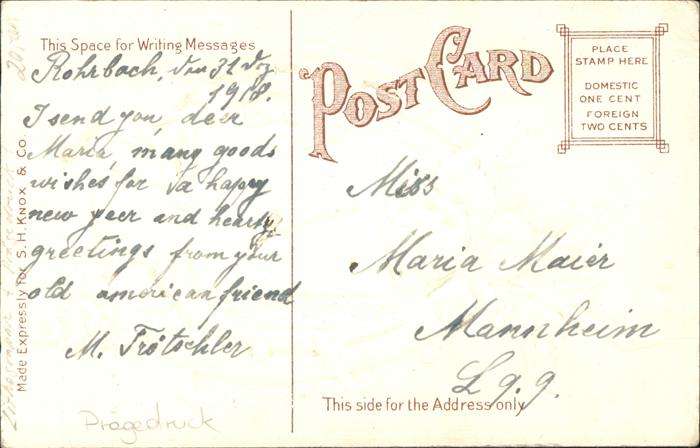 This Space for Writing Messages
Rohrbach, den 31 Dez
1918.
I send you, deer
Maria, many goods
wishes for a happy
new yeer and hearty
greetings from your
old american friend
M. Trötschler
Made Expressly for S. H. Knox & Co.
Prägedruck
POST CARD
PLACE
STAMP HERE
DOMESTIC
ONE CENT
FOREIGN
TWO CENTS
Miss
Maria Maier
Mannheim
This side for the Address only